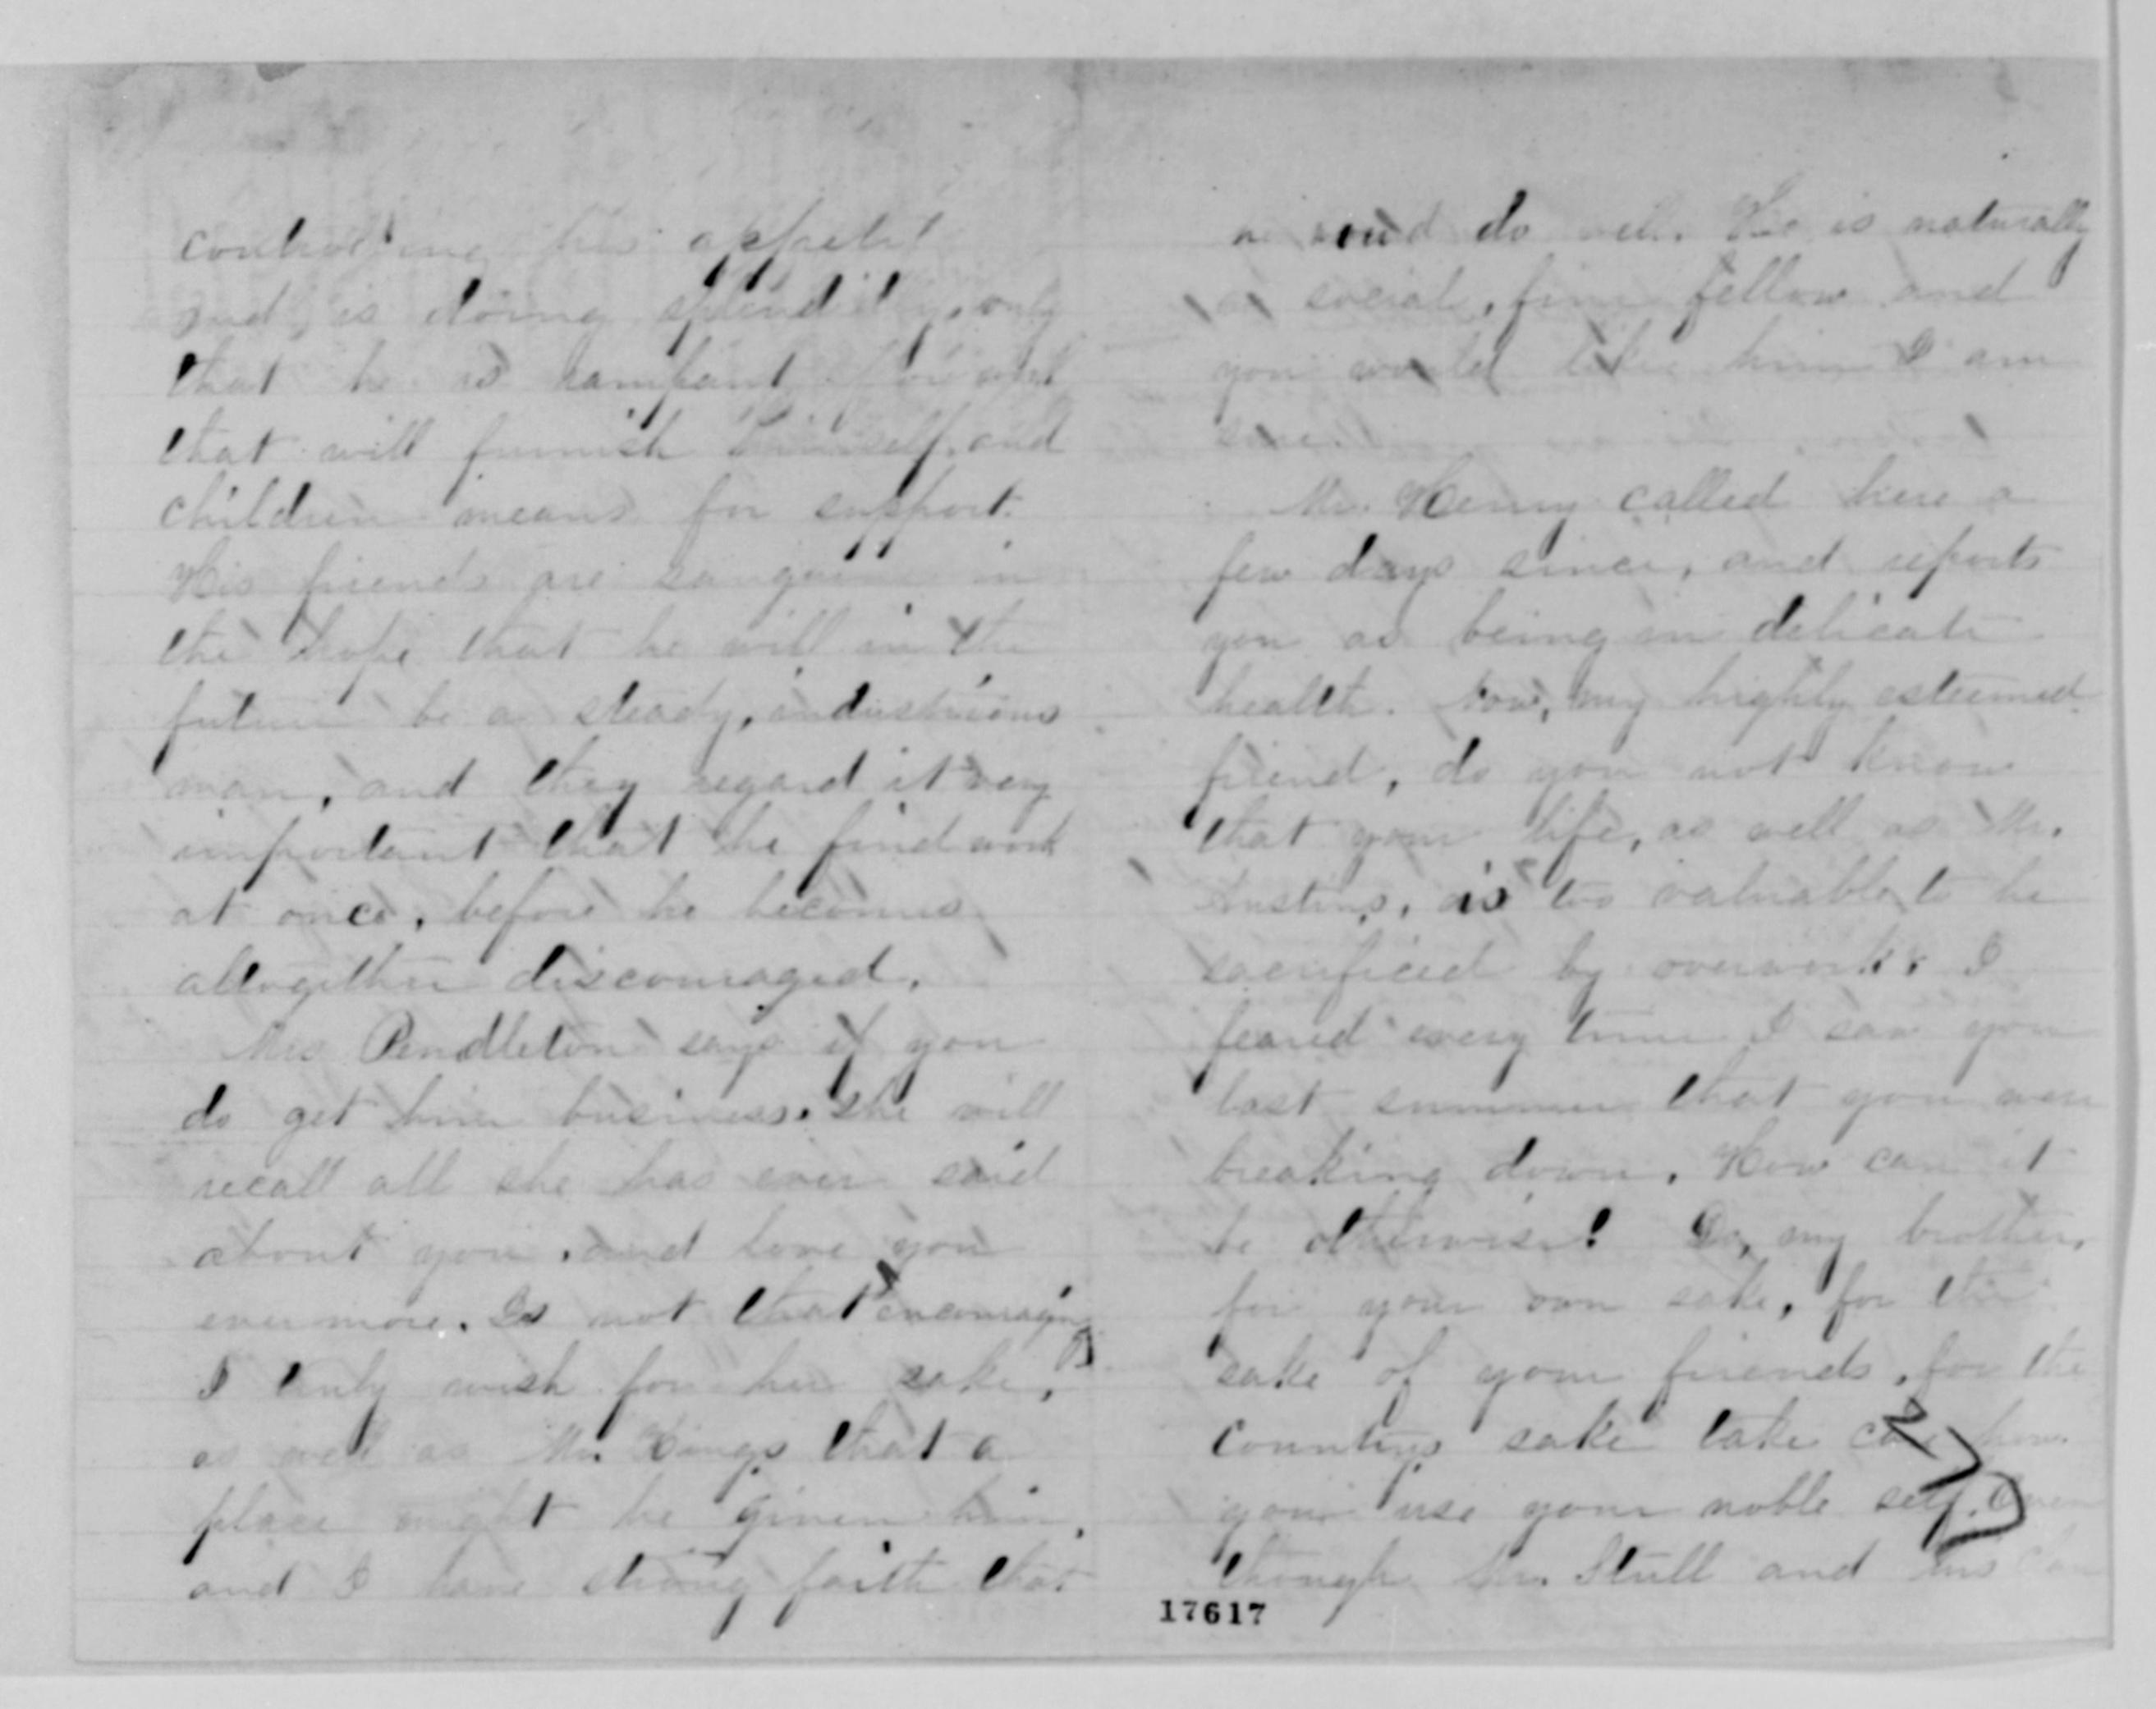 controlling his appetite
and is doing splendidly, only
that he is rampant for work
that will furnish himself and
children means for support.
His friends are sanguine in
the hope that he will in the
future be a steady, industrious
man, and they regard it very
important that he find work
at once, before he becomes
altogether discouraged.
Mrs Pendleton says if you
do get him business. She will
recall all she has ever said
about you, and love you
evermore. Is not that encouraging?
I truly wish for her sake,
as well as Mr. Kings that a
place might be given him,
and I have strong faith that
he would do well. He is naturally
a social, fine fellow and
you would like him I am
sure.
Mr. Henry called here a
few days since, and reports
you as being in delicate
health. Now, my highly esteemed
friend, do you not know
that your life, as well as Mr.
Austins, is too valuable to be
sacrificed by overwork. I
feared every time I saw you
last summer that you were
breaking down. How can it
be otherwise! Do, my brother,
for your own sake, for the
sake of your friends, for the
countrys sake take care how
you use your noble self. Even
though Mr. Stull and
17617